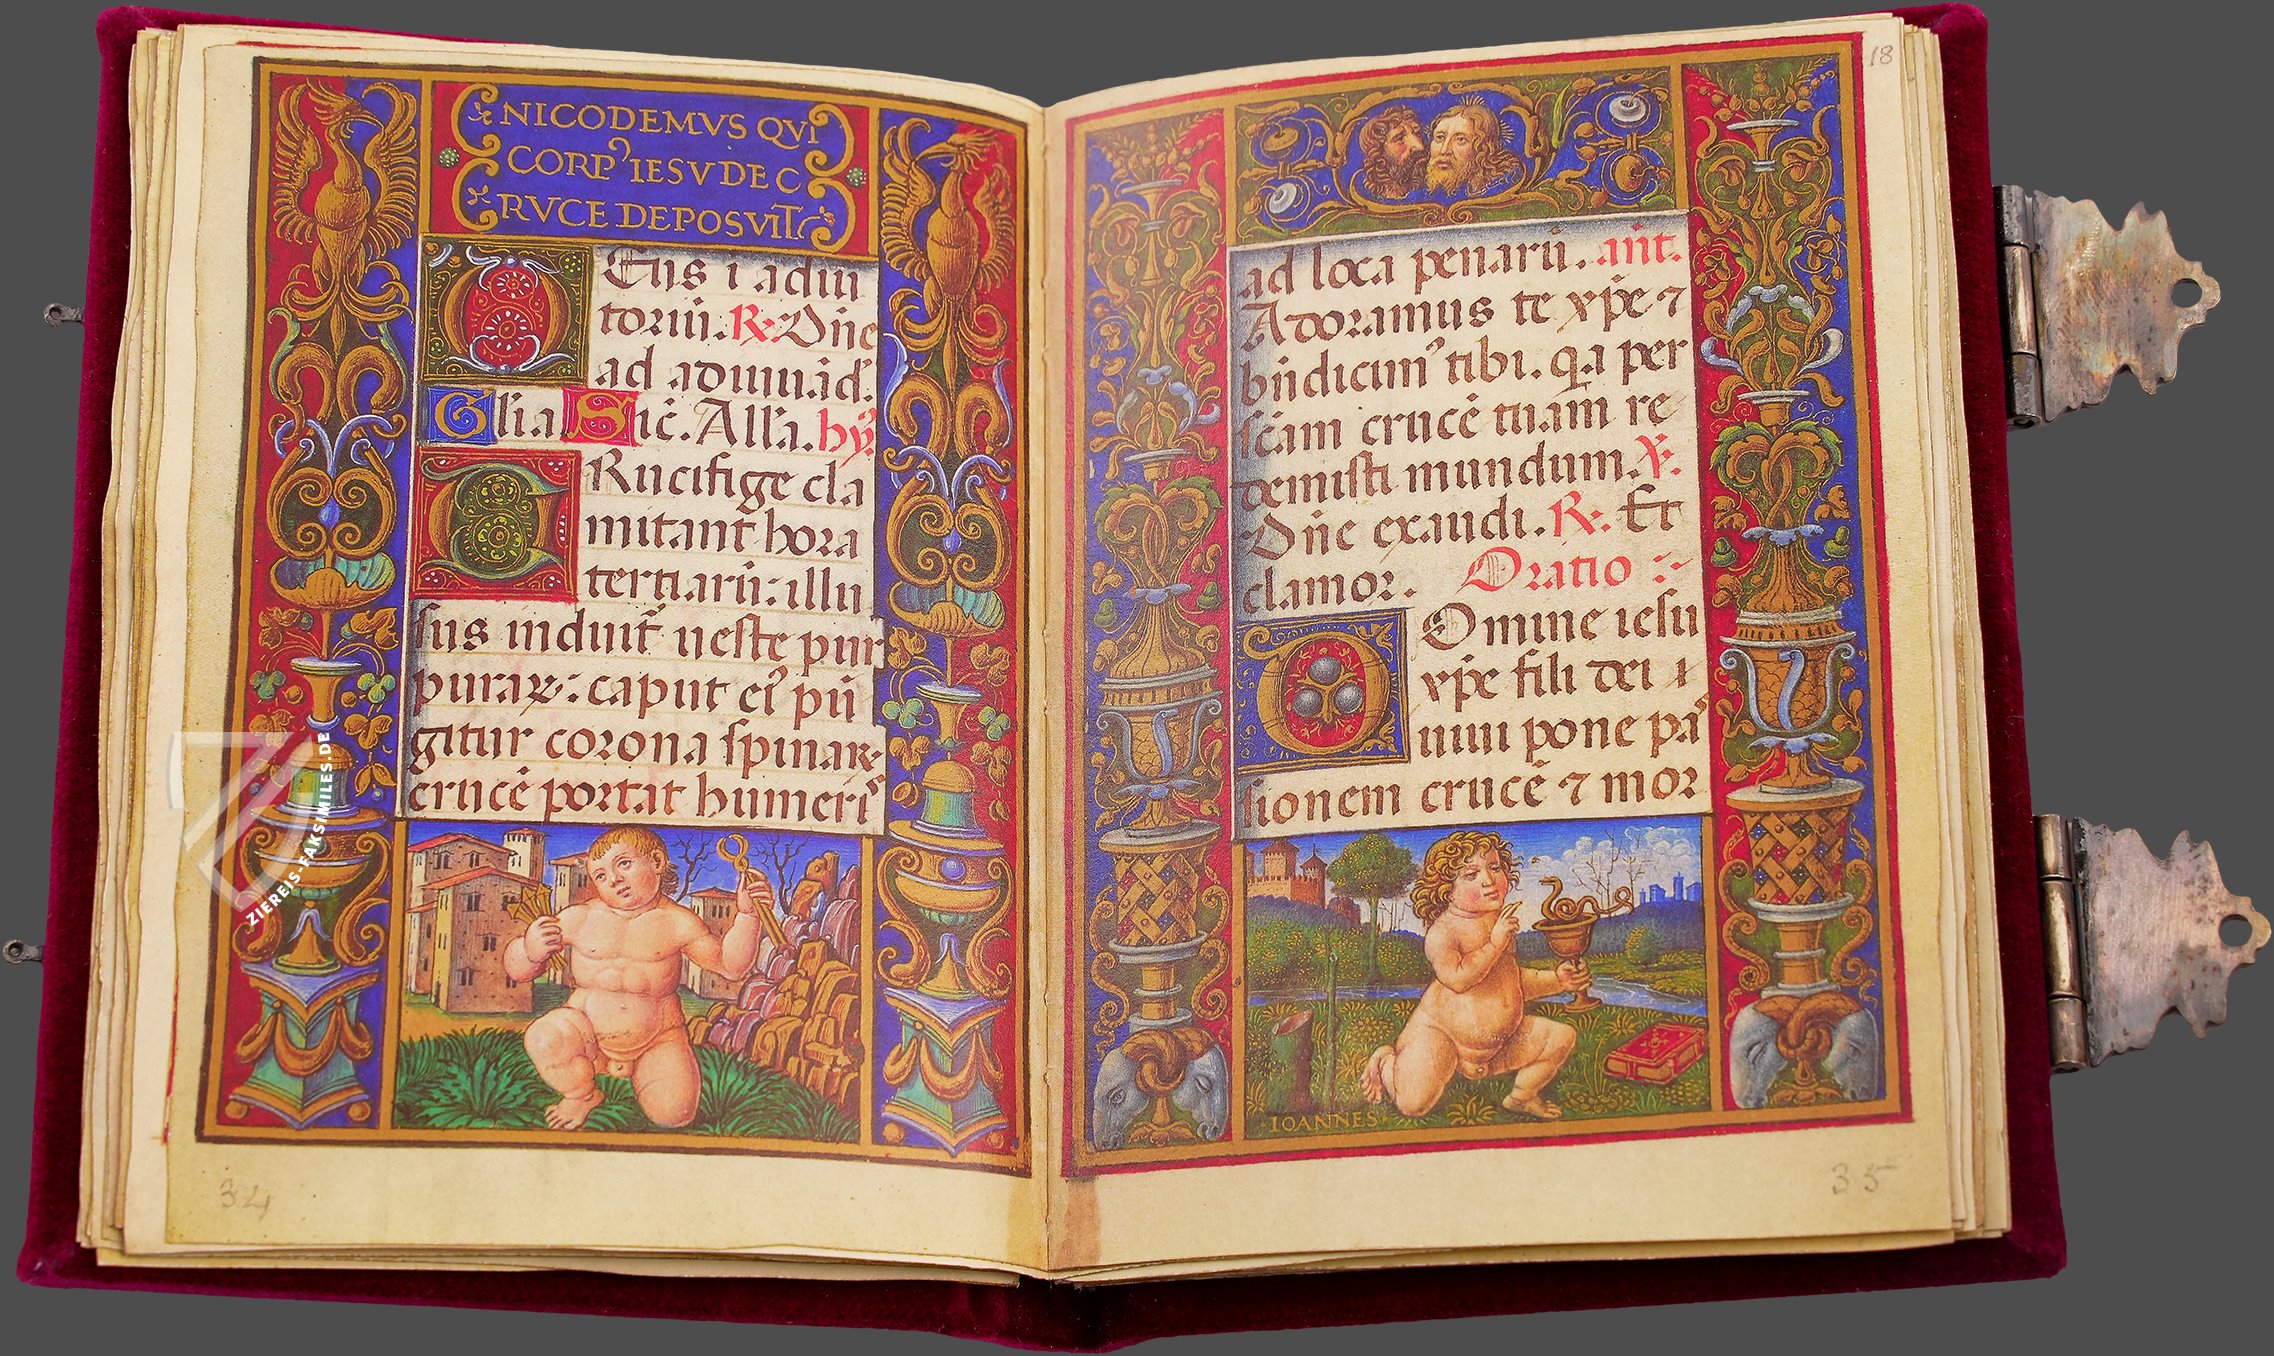 NICODEMVS QVI
CORPꝰ IESV DE C
RVCE DEPOSVIT
Deus ī adiu
toriū. ℟. Dñe
ad adiuuād.
Glīa Sic̄. All'a. hȳ.
CRucifige cla
mitant hora
tertiarū: illu
sus induit̄ ueste pur
puraꝝ: caput eiꝰ pū
gitur corona spinaꝝ
crucē portat humeris
34
18
ad loca penarū. ant.
Adoramus te xp̄e ⁊
bñdicimꝰ tibi. q̄a per
sc̄am crucē tuam re
demisti mundum. ℣.
Dñe exaudi. ℟. Et
clamor. Oratio
DOmine iesu
xp̄e fili dei ui
uiui pone pas
sionem crucē ⁊ mor
IOANNES
35
ZIEREIS-FAKSIMILES.DE